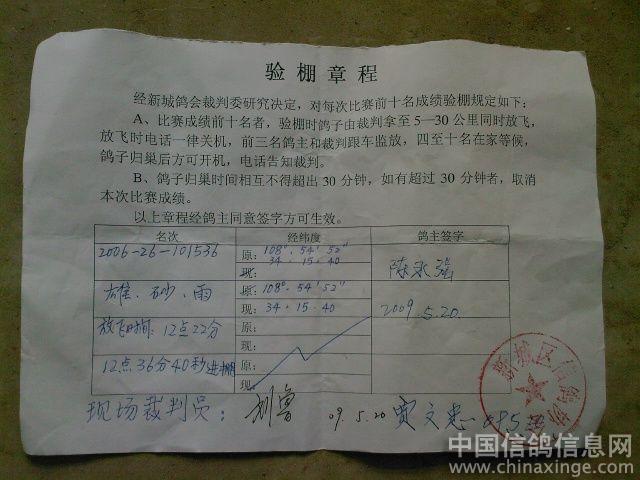 验棚章程
经新城鸽会裁判委研究决定，对每次比赛前十名成绩验棚规定如下：
A、比赛成绩前十名者，验棚时鸽子由裁判拿至 5—30 公里同时放飞，
放飞时电话一律关机，前三名鸽主和裁判跟车监放，四至十名在家等候，
鸽子归巢后方可开机，电话告知裁判。
B、鸽子归巢时间相互不得超出 30 分钟，如有超过 30 分钟者，取消
本次比赛成绩。
以上章程经鸽主同意签字方可生效。
名次 经纬度 鸽主签字
2006-26-101536 原：108°·54′52″
现：34·15·40 陈永强
雄、砂、雨 原：108°·54′52″
现：34·15·40 2009.5.20.
放飞时间：12点22分 原：
现：
12点36分40秒进棚 原：
现：
现场裁判员：刘鲁 09.5.20 文忠 09.5
新城区信鸽协
中国信鸽信息网
www.chinaxinge.com